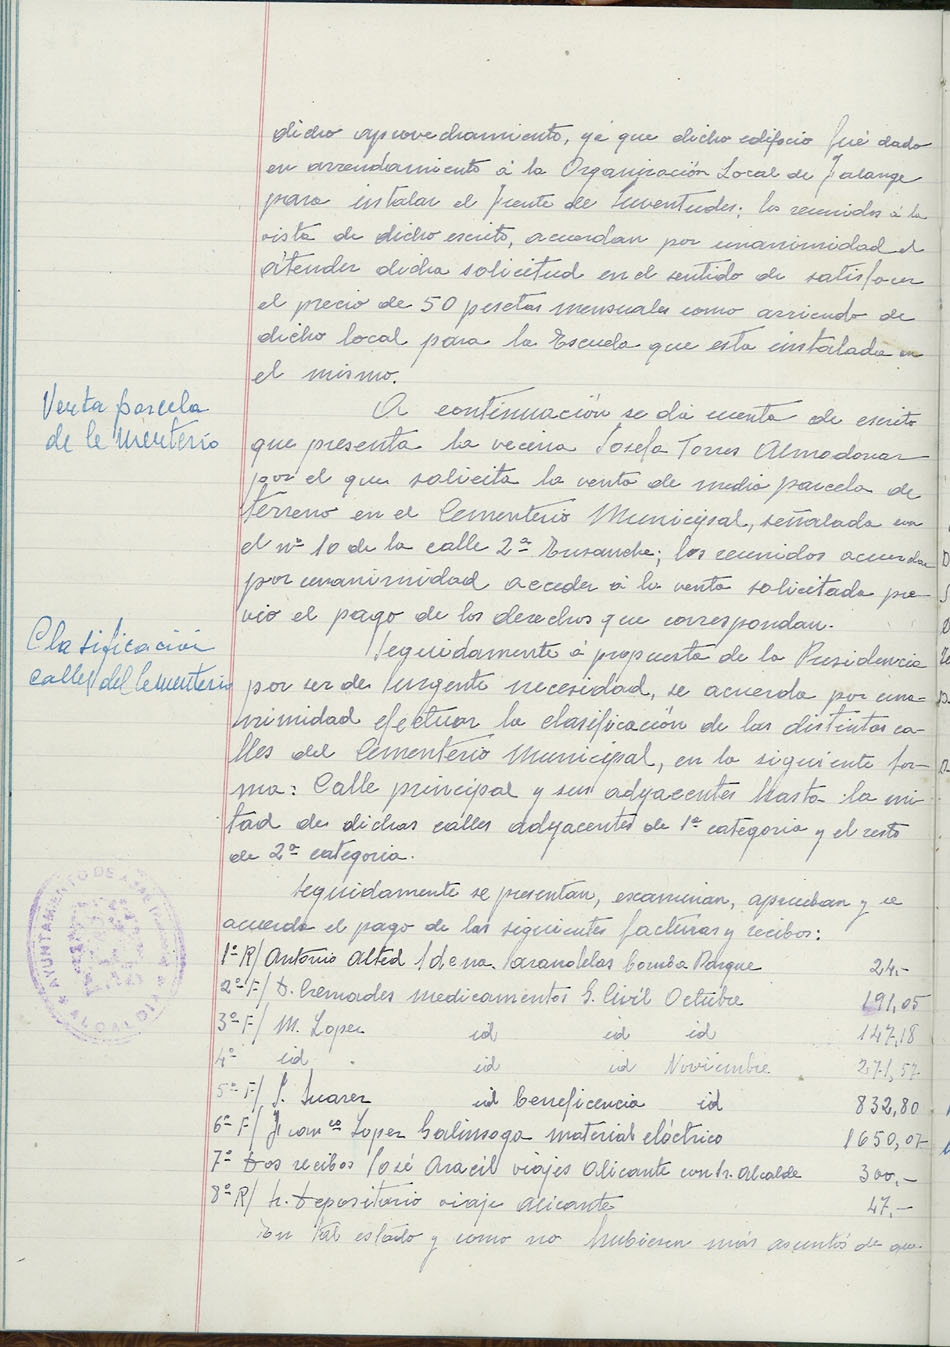 dicho aprovechamiento, ya que dicho edificio fué dado
en arrendamiento á la Organización Local de Falange
para instalar el Frente de Juventudes; los reunidos á la
vista de dicho escrito, acuerdan por unanimidad el
átender dicha solicitud en el sentido de satisfacer
el precio de 50 pesetas mensuales como arriendo de
dicho local para la Escuela que esta instalada en
el mismo.
Venta parcela
de Cementerio
A continuación se dá cuenta de escrito
que presenta la vecina Josefa Torres Almodovar
por el que solicita la venta de media parcela de
terreno en el Cementerio Municipal, señalada con
el nº 10 de la calle 2ª Ensanche; los reunidos acuerdan
por unanimidad acceder á la venta solicitada pre-
vio el pago de los derechos que correspondan.
Clasificación
calles del Cementerio
Seguidamente á propuesta de la Presidencia
por ser de urgente necesidad, se acuerda por una-
nimidad efectuar la clasificación de las distintas ca-
lles del Cementerio Municipal, en la siguiente for-
ma: Calle principal y sus adyacentes hasta la mi-
tad de dichas calles adyacentes de 1ª categoria y el resto
de 2ª categoria.
Seguidamente se presentan, examinan, aprueban y se
acuerda el pago de las siguientes facturas y recibos:
1º R/ Antonio Alted Bomba Parque 24.-
2º F/ D. Cremades medicamentos G. Civil Octubre 191,05
3º F/ M. Lopez id id id 147,18
4º id id id Noviembre 271,57
5º F/ J. Suarez id beneficencia id 832,80
6º F/ Franco Lopez Galinsoga material eléctrico 1650,07
7º Dos recibos José Aracil viajes Alicante con Sr. Alcalde 300,-
8º R/ Sr. Depositario viaje Alicante 47.-
En tal estado y como no hubiesen más asuntos de que
AYUNTAMIENTO DE
ALCALDIA